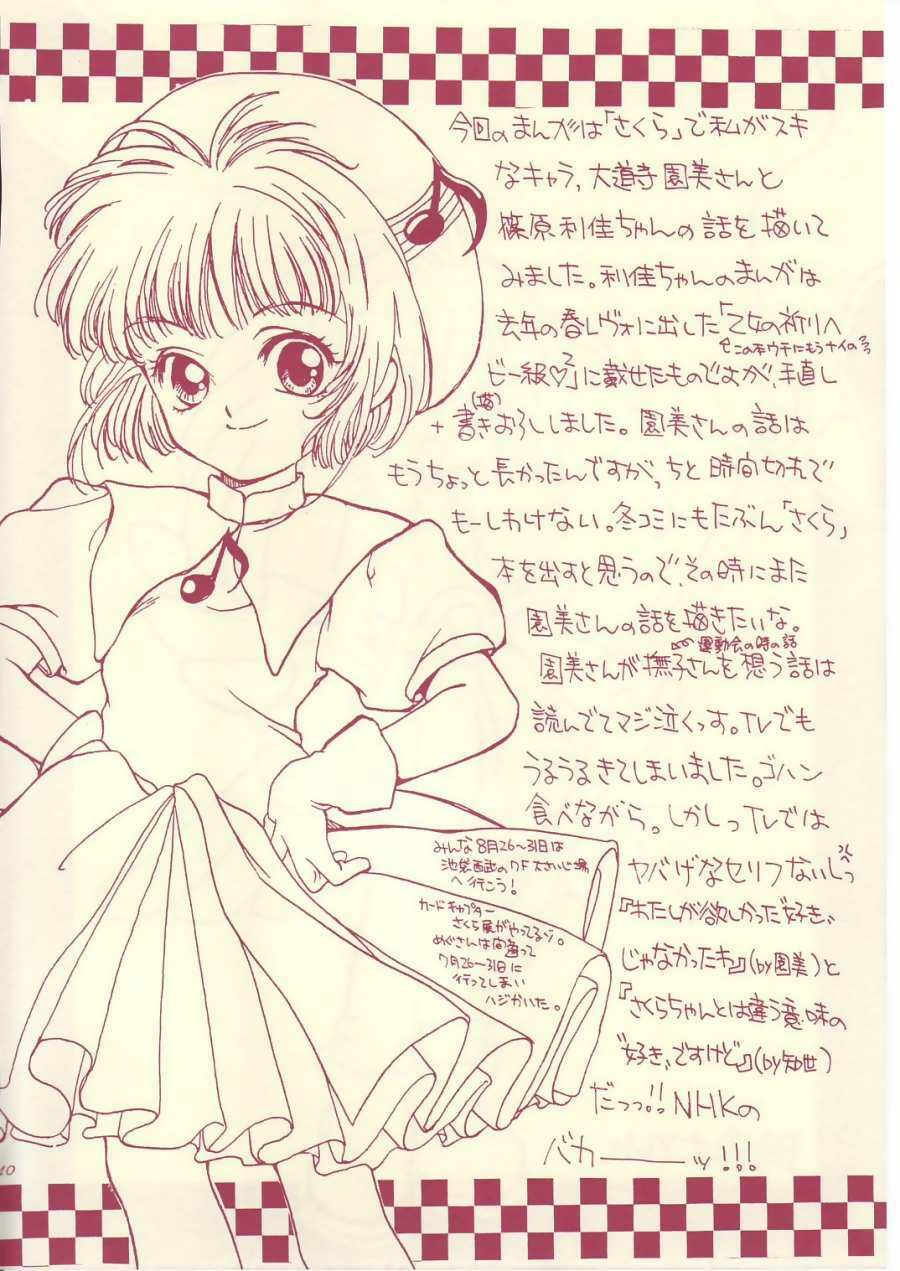 今回のまんがは「さくら」で私がスキ
なキャラ、大道寺園美さんと
篠原利佳ちゃんの話を描いて
みました。利佳ちゃんのまんがは
去年の春レヴォに出した「乙女の祈りへ
この本ウチにもうナイの
ビー級♡」に載せたものですが、手直し
(描)
+書きおろししました。園美さんの話は
もうちょっと長かったんですが、ちと時間切れで
もーしわけない。冬コミにもたぶん「さくら」
本を出すと思うので、その時にまた
園美さんの話を描きたいな。
運動会の時の話
園美さんが撫子さんを想う話は
読んでてマジ泣くっす。TVでも
うるうるきてしまいました。ゴハン
食べながら。しかしっTVでは
ヤバげなセリフないしっ
『わたしが欲しかった“好き”
じゃなかったわ』(by園美)と
『さくらちゃんとは違う意味の
“好き”ですけど』(by知世)
だっっ!!NHKの
バカ――ッ!!!
みんな8月26〜31日は
池袋西武の7Fだいじ場
へ行こう!
カードキャプター
さくら展がやってるゾ。
めぐさんは間違って
7月26〜31日に
行ってしまい
ハジかいた。
40